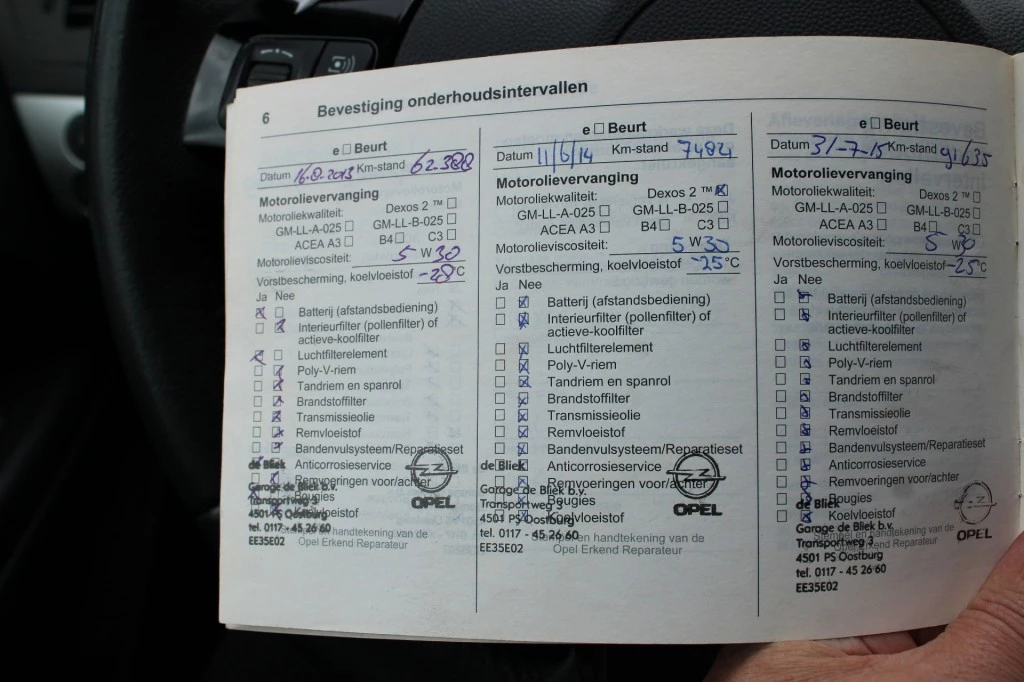 6 Bevestiging onderhoudsintervallen
e □ Beurt
Datum 16.8.2013 Km-stand 62.388
Motorolievervanging
Motoroliekwaliteit: Dexos 2 ™ □
GM-LL-A-025 □ GM-LL-B-025 □
ACEA A3 □ B4 □ C3 □
Motorolieviscositeit: 5 W 30
Vorstbescherming, koelvloeistof -28°C
Ja Nee
Batterij (afstandsbediening)
Interieurfilter (pollenfilter) of
actieve-koolfilter
Luchtfilterelement
Poly-V-riem
Tandriem en spanrol
Brandstoffilter
Transmissieolie
Remvloeistof
Bandenvulsysteem/Reparatieset
Anticorrosieservice
Remvoeringen voor/achter
Bougies
Koelvloeistof
Stempel en handtekening van de
Opel Erkend Reparateur
de Bliek
Garage de Bliek b.v.
Transportweg 3
4501 PS Oostburg
tel. 0117 - 45 26 60
EE35E02
OPEL
e □ Beurt
Datum 11/6/14 Km-stand
Motorolievervanging
Motoroliekwaliteit: Dexos 2 ™ ☒
GM-LL-A-025 □ GM-LL-B-025 □
ACEA A3 □ B4 □ C3 □
Motorolieviscositeit: 5 W 30
Vorstbescherming, koelvloeistof -25°C
Ja Nee
Batterij (afstandsbediening)
Interieurfilter (pollenfilter) of
actieve-koolfilter
Luchtfilterelement
Poly-V-riem
Tandriem en spanrol
Brandstoffilter
Transmissieolie
Remvloeistof
Bandenvulsysteem/Reparatieset
Anticorrosieservice
Remvoeringen voor/achter
Bougies
Koelvloeistof
Stempel en handtekening van de
Opel Erkend Reparateur
de Bliek
Garage de Bliek b.v.
Transportweg 3
4501 PS Oostburg
tel. 0117 - 45 26 60
EE35E02
OPEL
e □ Beurt
Datum 31-7-15 Km-stand 91635
Motorolievervanging
Motoroliekwaliteit: Dexos 2 ™ □
GM-LL-A-025 □ GM-LL-B-025 □
ACEA A3 □ B4 □ C3 □
Motorolieviscositeit: 5 W 30
Vorstbescherming, koelvloeistof -25°C
Ja Nee
Batterij (afstandsbediening)
Interieurfilter (pollenfilter) of
actieve-koolfilter
Luchtfilterelement
Poly-V-riem
Tandriem en spanrol
Brandstoffilter
Transmissieolie
Remvloeistof
Bandenvulsysteem/Reparatieset
Anticorrosieservice
Remvoeringen voor/achter
Bougies
Koelvloeistof
Stempel en handtekening van de
Opel Erkend Reparateur
de Bliek
Garage de Bliek b.v.
Transportweg 3
4501 PS Oostburg
tel. 0117 - 45 26 60
EE35E02
OPEL